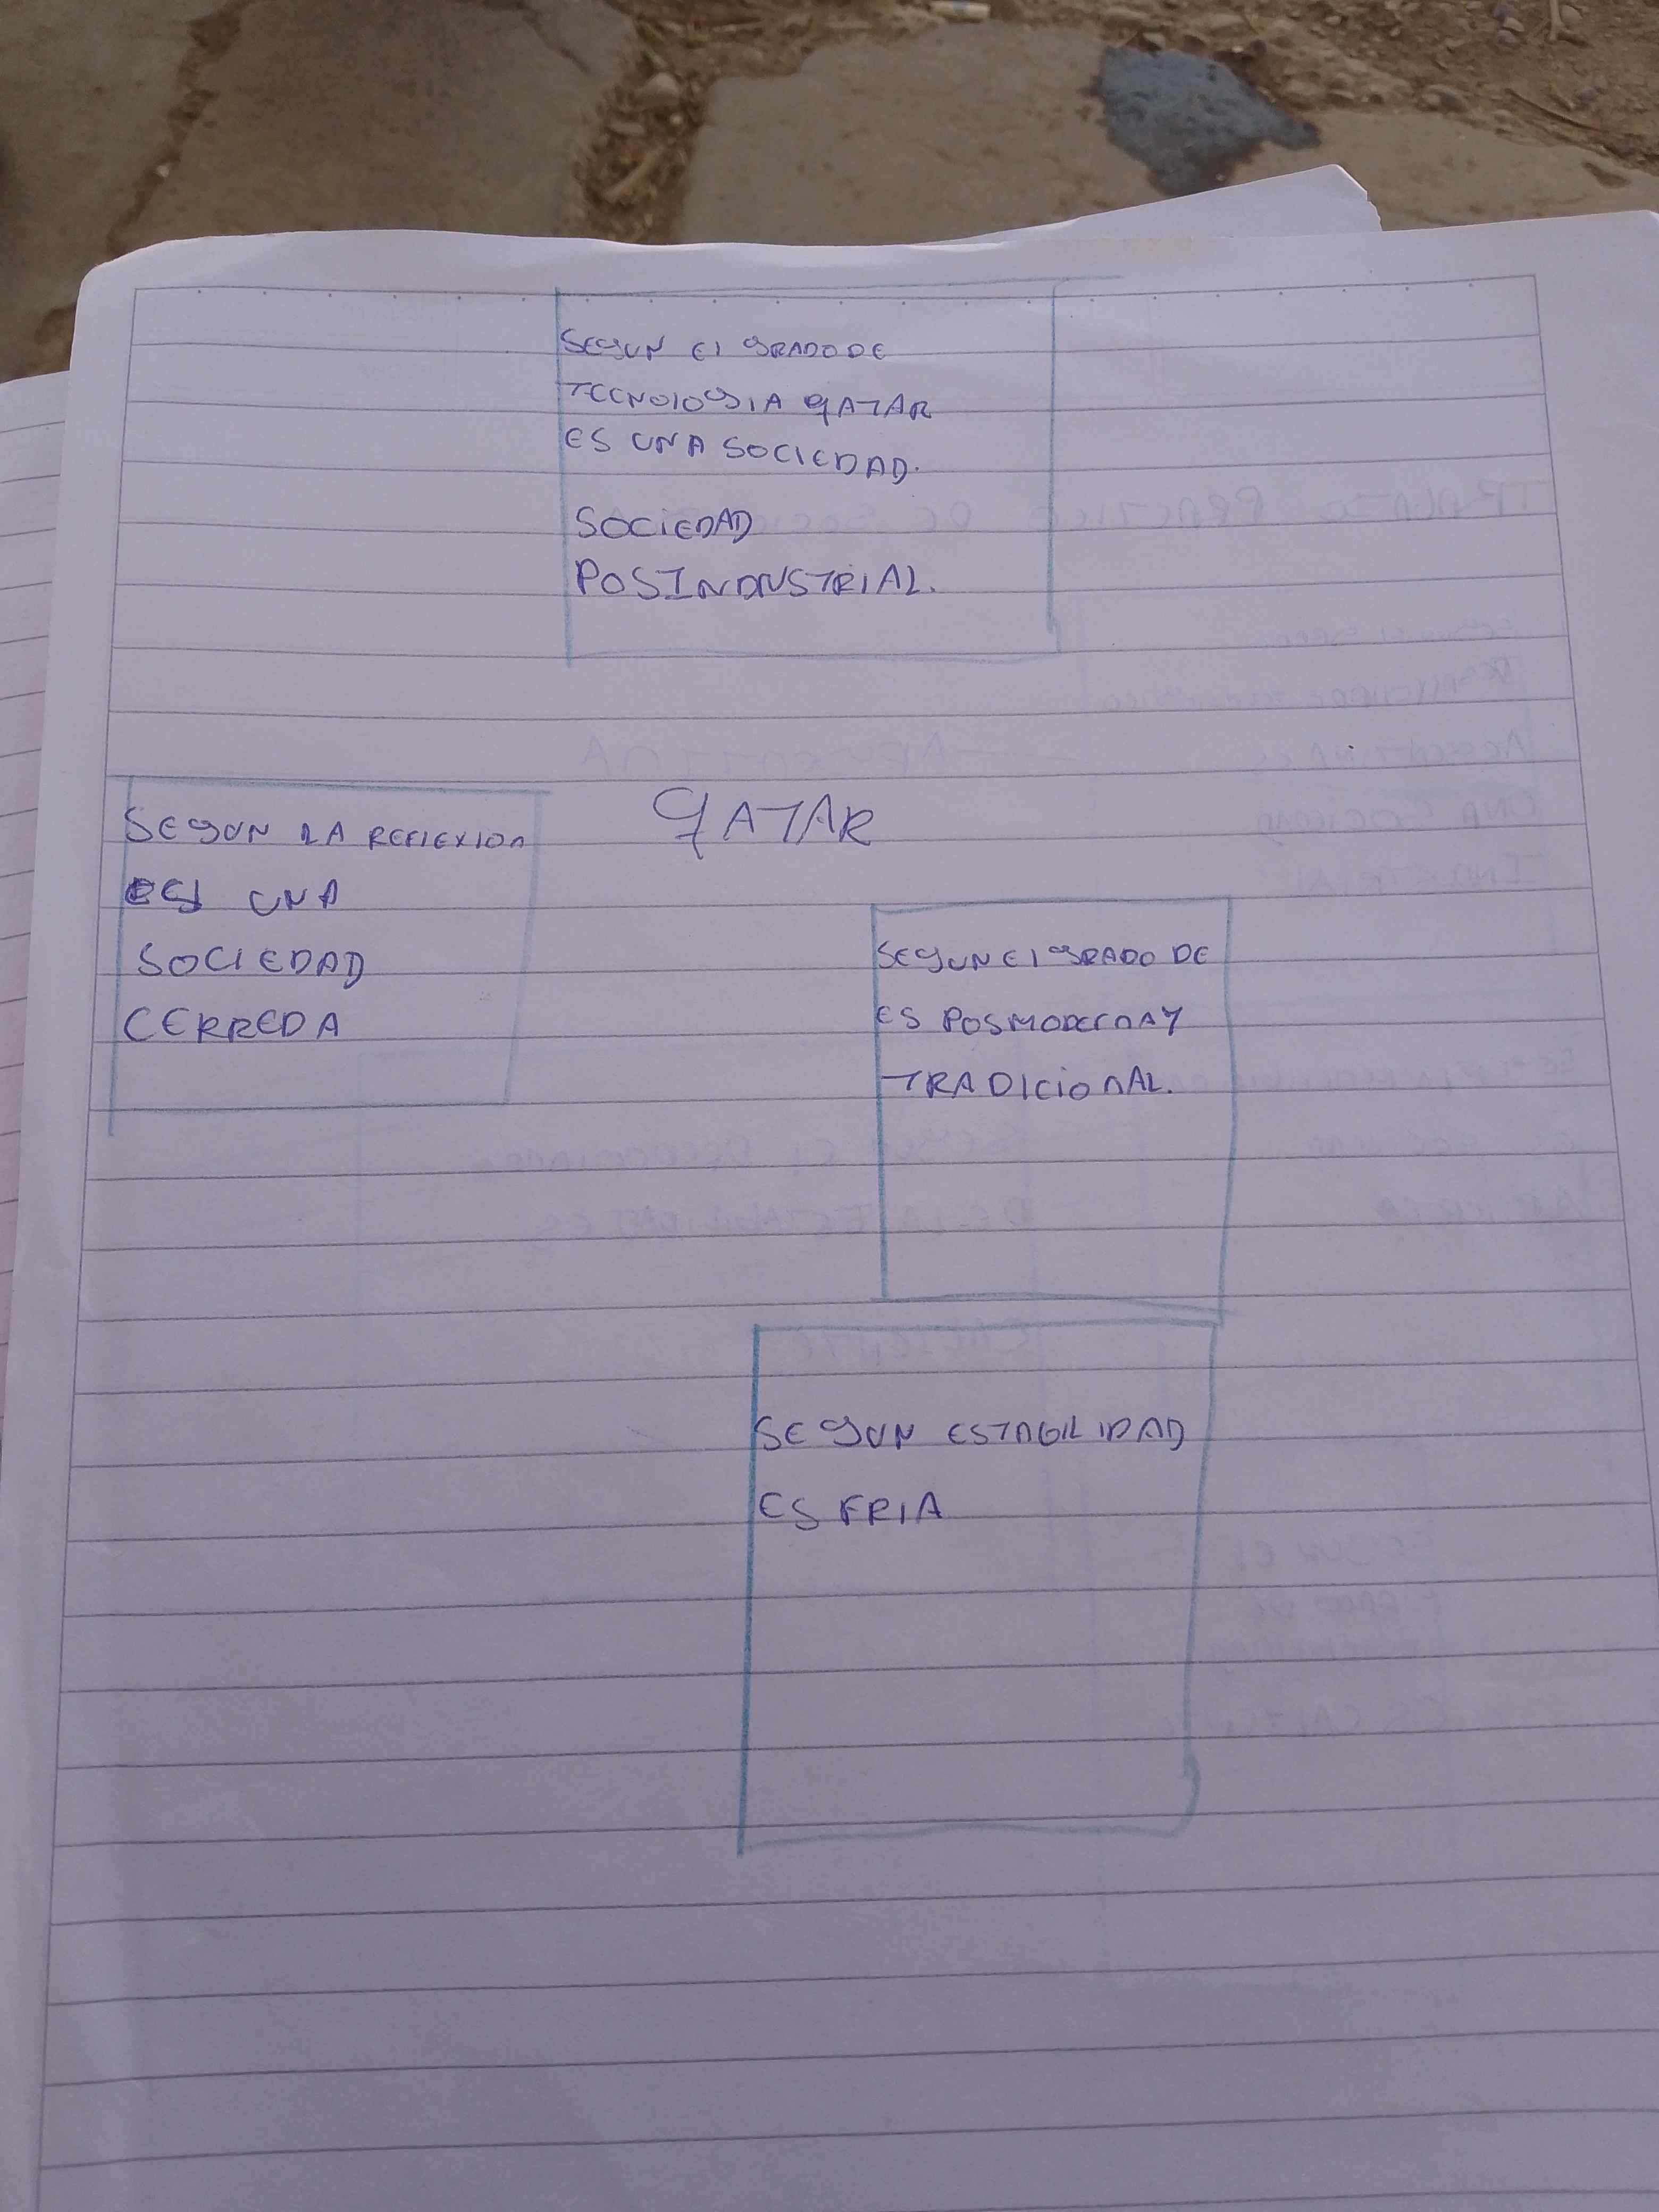 SEGUN El GRADO DE
TECNOlOGIA QATAR
ES UNA SOCIEDAD.
SOCIEDAD
POSINDNSTRIAL.
QATAR
SEGUN LA REFlEXION
ES UNA
SOCIEDAD
CERREDA
SEGUN El GRADO DE
ES POSMODERNA Y
TRADICIONAL.
SEGUN ESTABILIDAD
ES FRIA